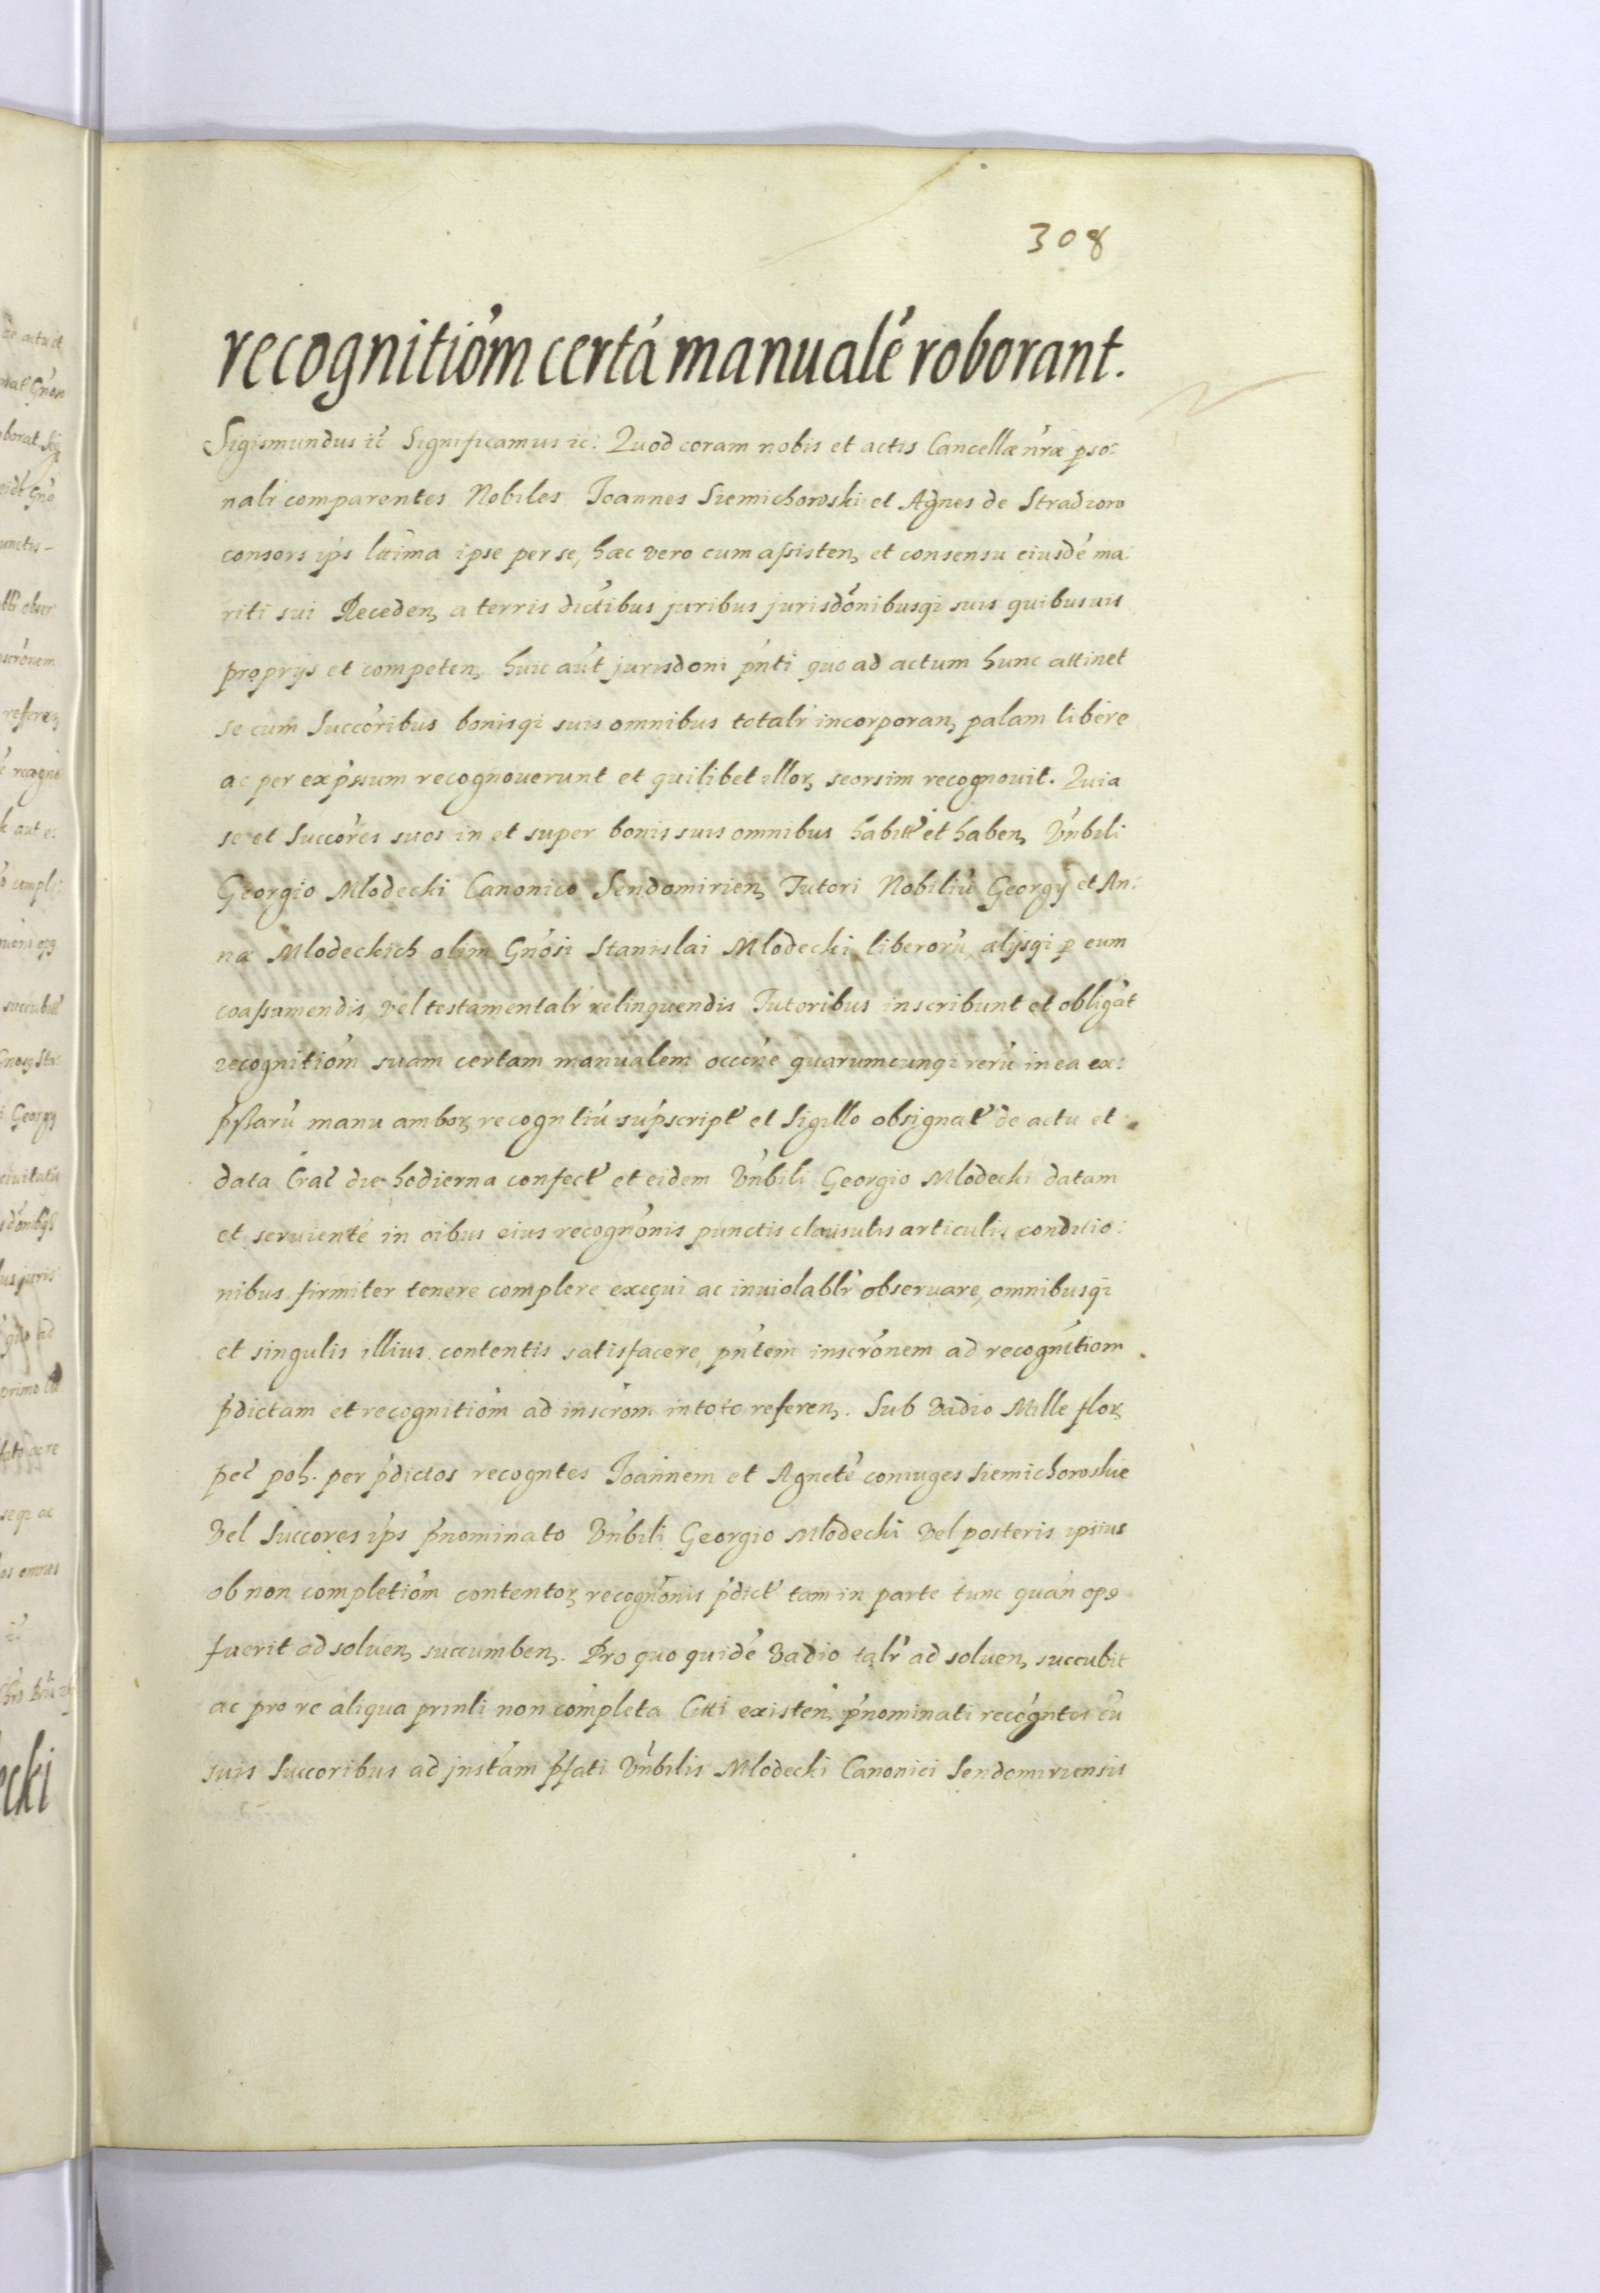 308
recognitiom certa manuale roborant.
Sigismundus ic Significamus ic: Quod coram nobis et actis Cancellæ nræ pso:
nalr comparentes Nobiles Joannes Siemichowski et Agnes de Stradzoro
consors ips ltima ipse per se, hæc vero cum assisten, et consensu eiusde ma:
riti sui Receden, a terris dictibus juribus jurisdonibusqi suis quibusuis
proprijs et competen, huic aut jurisdoni pnti quo ad actum hunc attinet
se cum Succoribus bonisqi suis omnibus totalr incorporan, palam libere
ac per expssum recognouerunt et quilibet illor, seorsim recognouit. Quia
se et Succores suos in et super bonis suis omnibus habit et haben, Vnbili
Georgio Mlodecki Canonico Sendomirien, Tutori Nobiliu Georgy et An:
næ Mlodeckich olim Gnosi Stanislai Mlodecki liberoru, alijsqi p eum
coassumendis, vel testamentalr relinquendis Tutoribus inscribunt et obligat
recognitiom suam certam manualem occne quarumcunqi reru in ea ex:
pssaru manu ambor, recogntiu supscript et Sigillo obsignat de actu et
data Crac die hodierna confect et eidem Vnbili Georgio Mlodecki datam
et seruiente in oibus eius recognonis punctis clausulis articulis conditio:
nibus firmiter tenere complere exequi ac inuiolablr obseruare, omnibusqi
et singulis illius contentis satisfacere, pntem inscronem ad recognitiom
pdictam et recognitiom ad inscrom in toto referen,. Sub Vadio Mille flor,
pec poh. per pdictos recogntes Joannem et Agnete coniuges Siemichowskie
Vel Succores ips pnominato Vnbili Georgio Mlodecki Vel posteris ipsius
ob non completiom contentor, recognonis pdict tam in parte tunc quan op9
fuerit ad soluen, succumben,. Pro quo quide Vadio talr ad soluen, succubit
ac pro re aliqua prinli non completa Citti existen, pnominati recogntes cu
suis Succoribus ad jnstam pfati Vnbilis Mlodecki Canonici Sendomiriensis